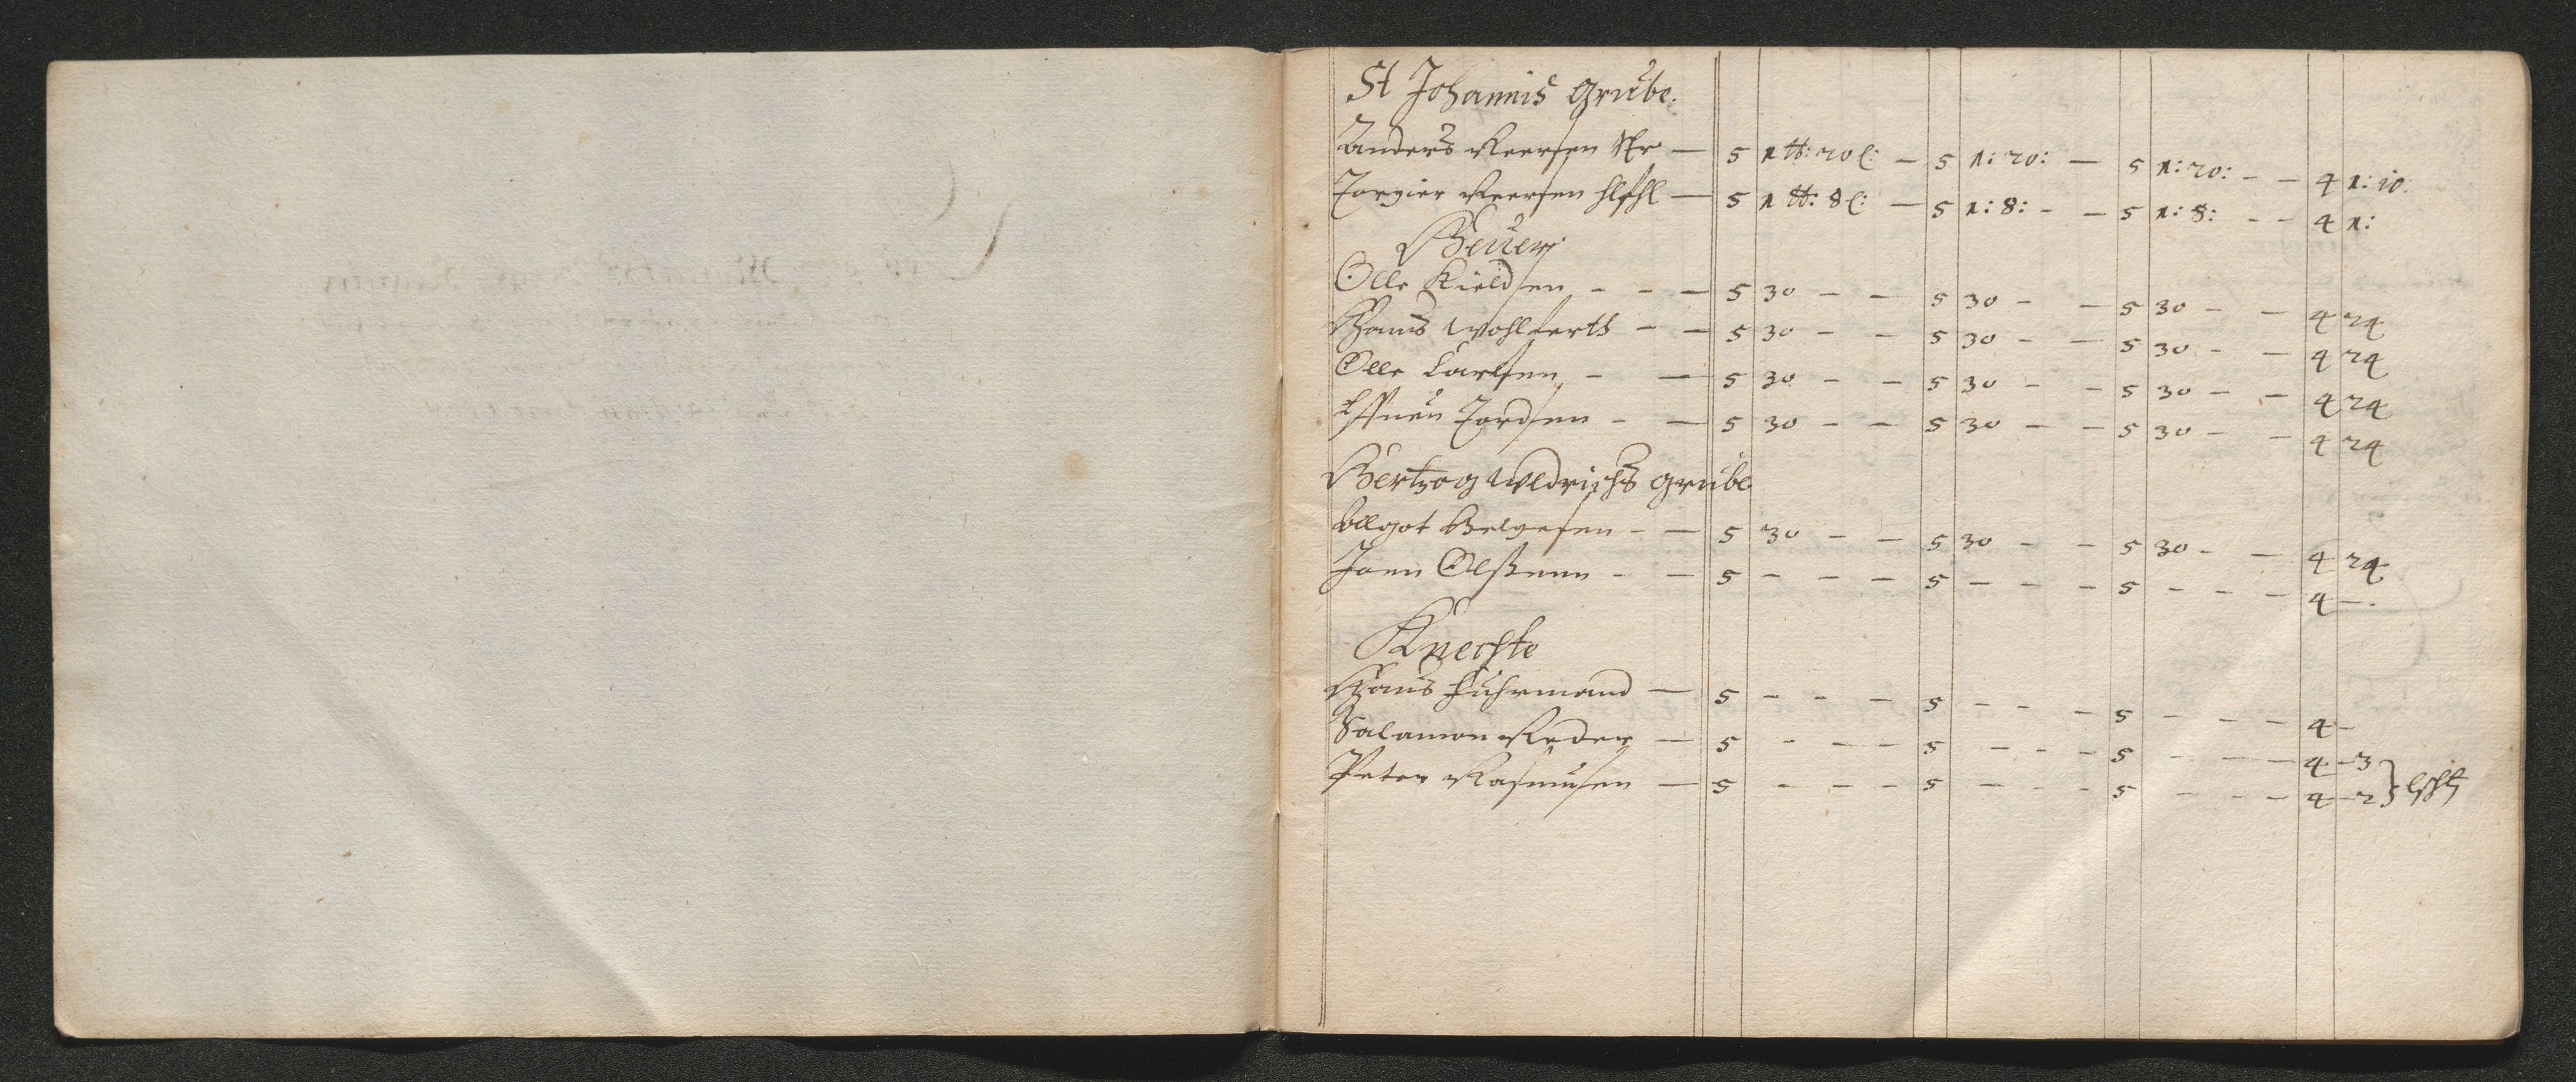 St Johannis Grube.
Anders Reersen — 5 1 tt: 20 ſ: — 5 1: 20: — 5 1: 20: - - 4 1: 10.
Torgier Reersen — 5 1 tt: 8 ſ: — 5 1: 8: - — 5 1: 8: - - 4 1:
Heuer
Olle Kieldsen - - — 5 30 - — 5 30 - — 5 30 - — 4 24
Hans Wohlferth - — 5 30 - - 5 30 - — 5 30 - — 4 24
Olle Larhsen - — 5 30 - - 5 30 - - 5 30 - — 4 24
Tordsen - — 5 30 - - 5 30 - - 5 30 - - 4 24
Hertzog Uldrichs Grube
Helgesen - — 5 30 - - 5 30 - - 5 30 - — 4 24
Joen Olßenn - — 5 - - - 5 - - - 5 - - - 4 —.
Knechte
Hans Fuhrmand — 5 - - - 5 - - - 5 - - - 4 -
Salamon Reder — 5 - - - 5 - - - 5 - - - 4 - 3
Peter Rasmusen — 5 - - - 5 - - - 5 - - - 4 - 2